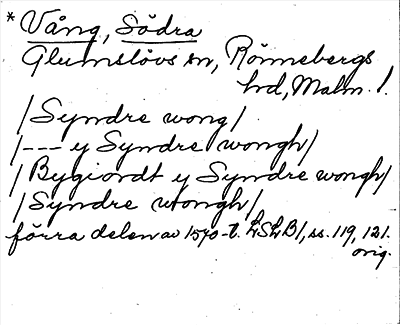 * Vång, Södra
Glumslövs sn, Rönnebergs
hd, Malm. l.
/Syndre wong/
/--- y Syndre wongh/
/Bygiordt y Syndre wongh/
/Syndre wongh/
förra delen av 1570-t. LSLB1, ss. 119, 121.
orig.